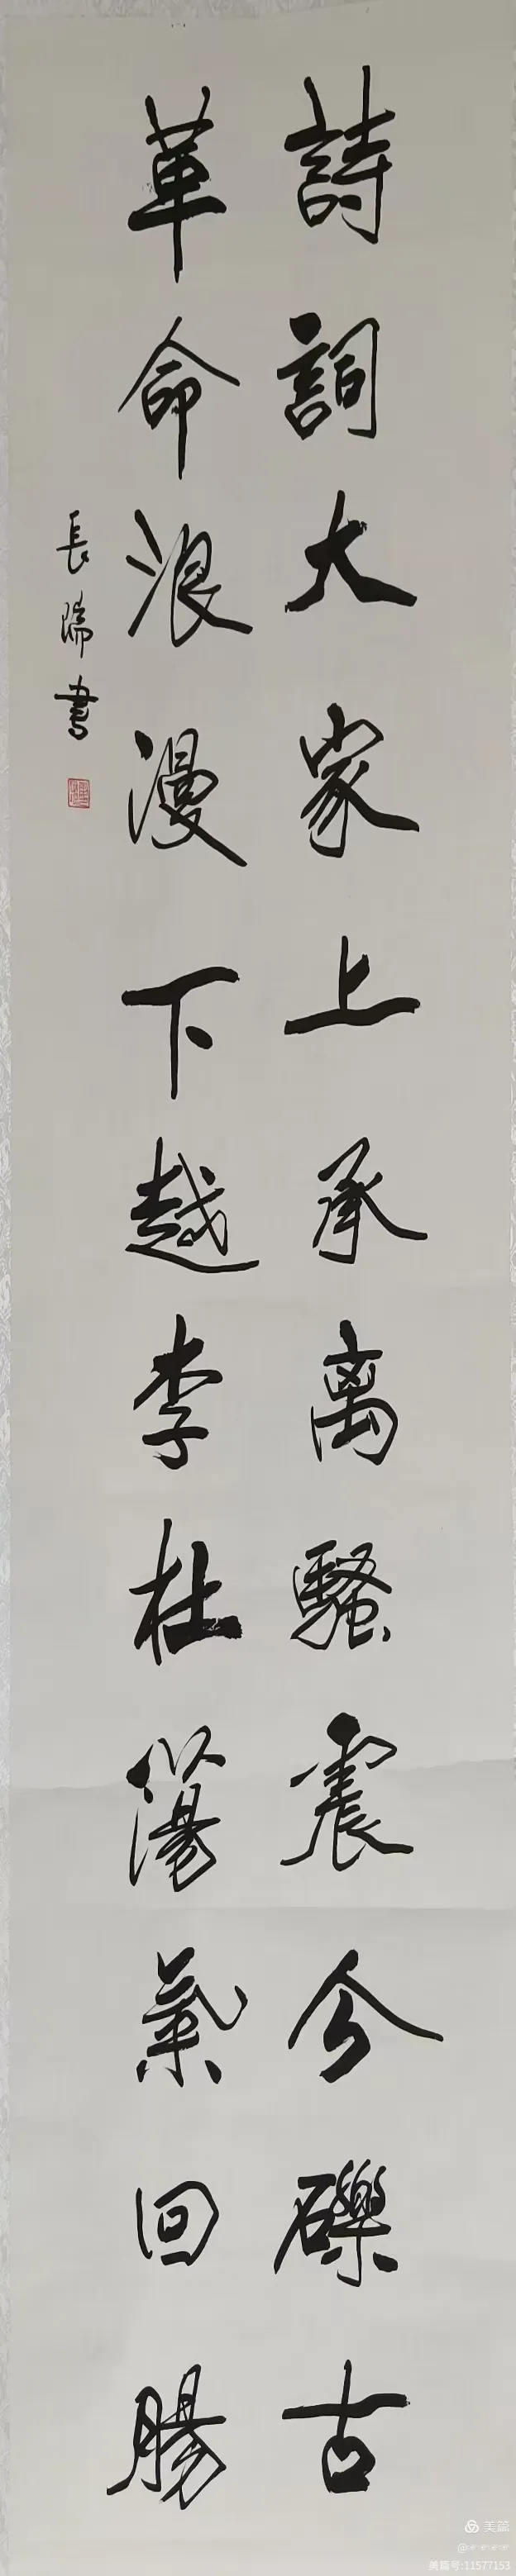 詩詞大家上承离騷震今礫古
革命浪漫下越李杜蕩氣回腸
長瑞書
美篇
美篇号:11577153